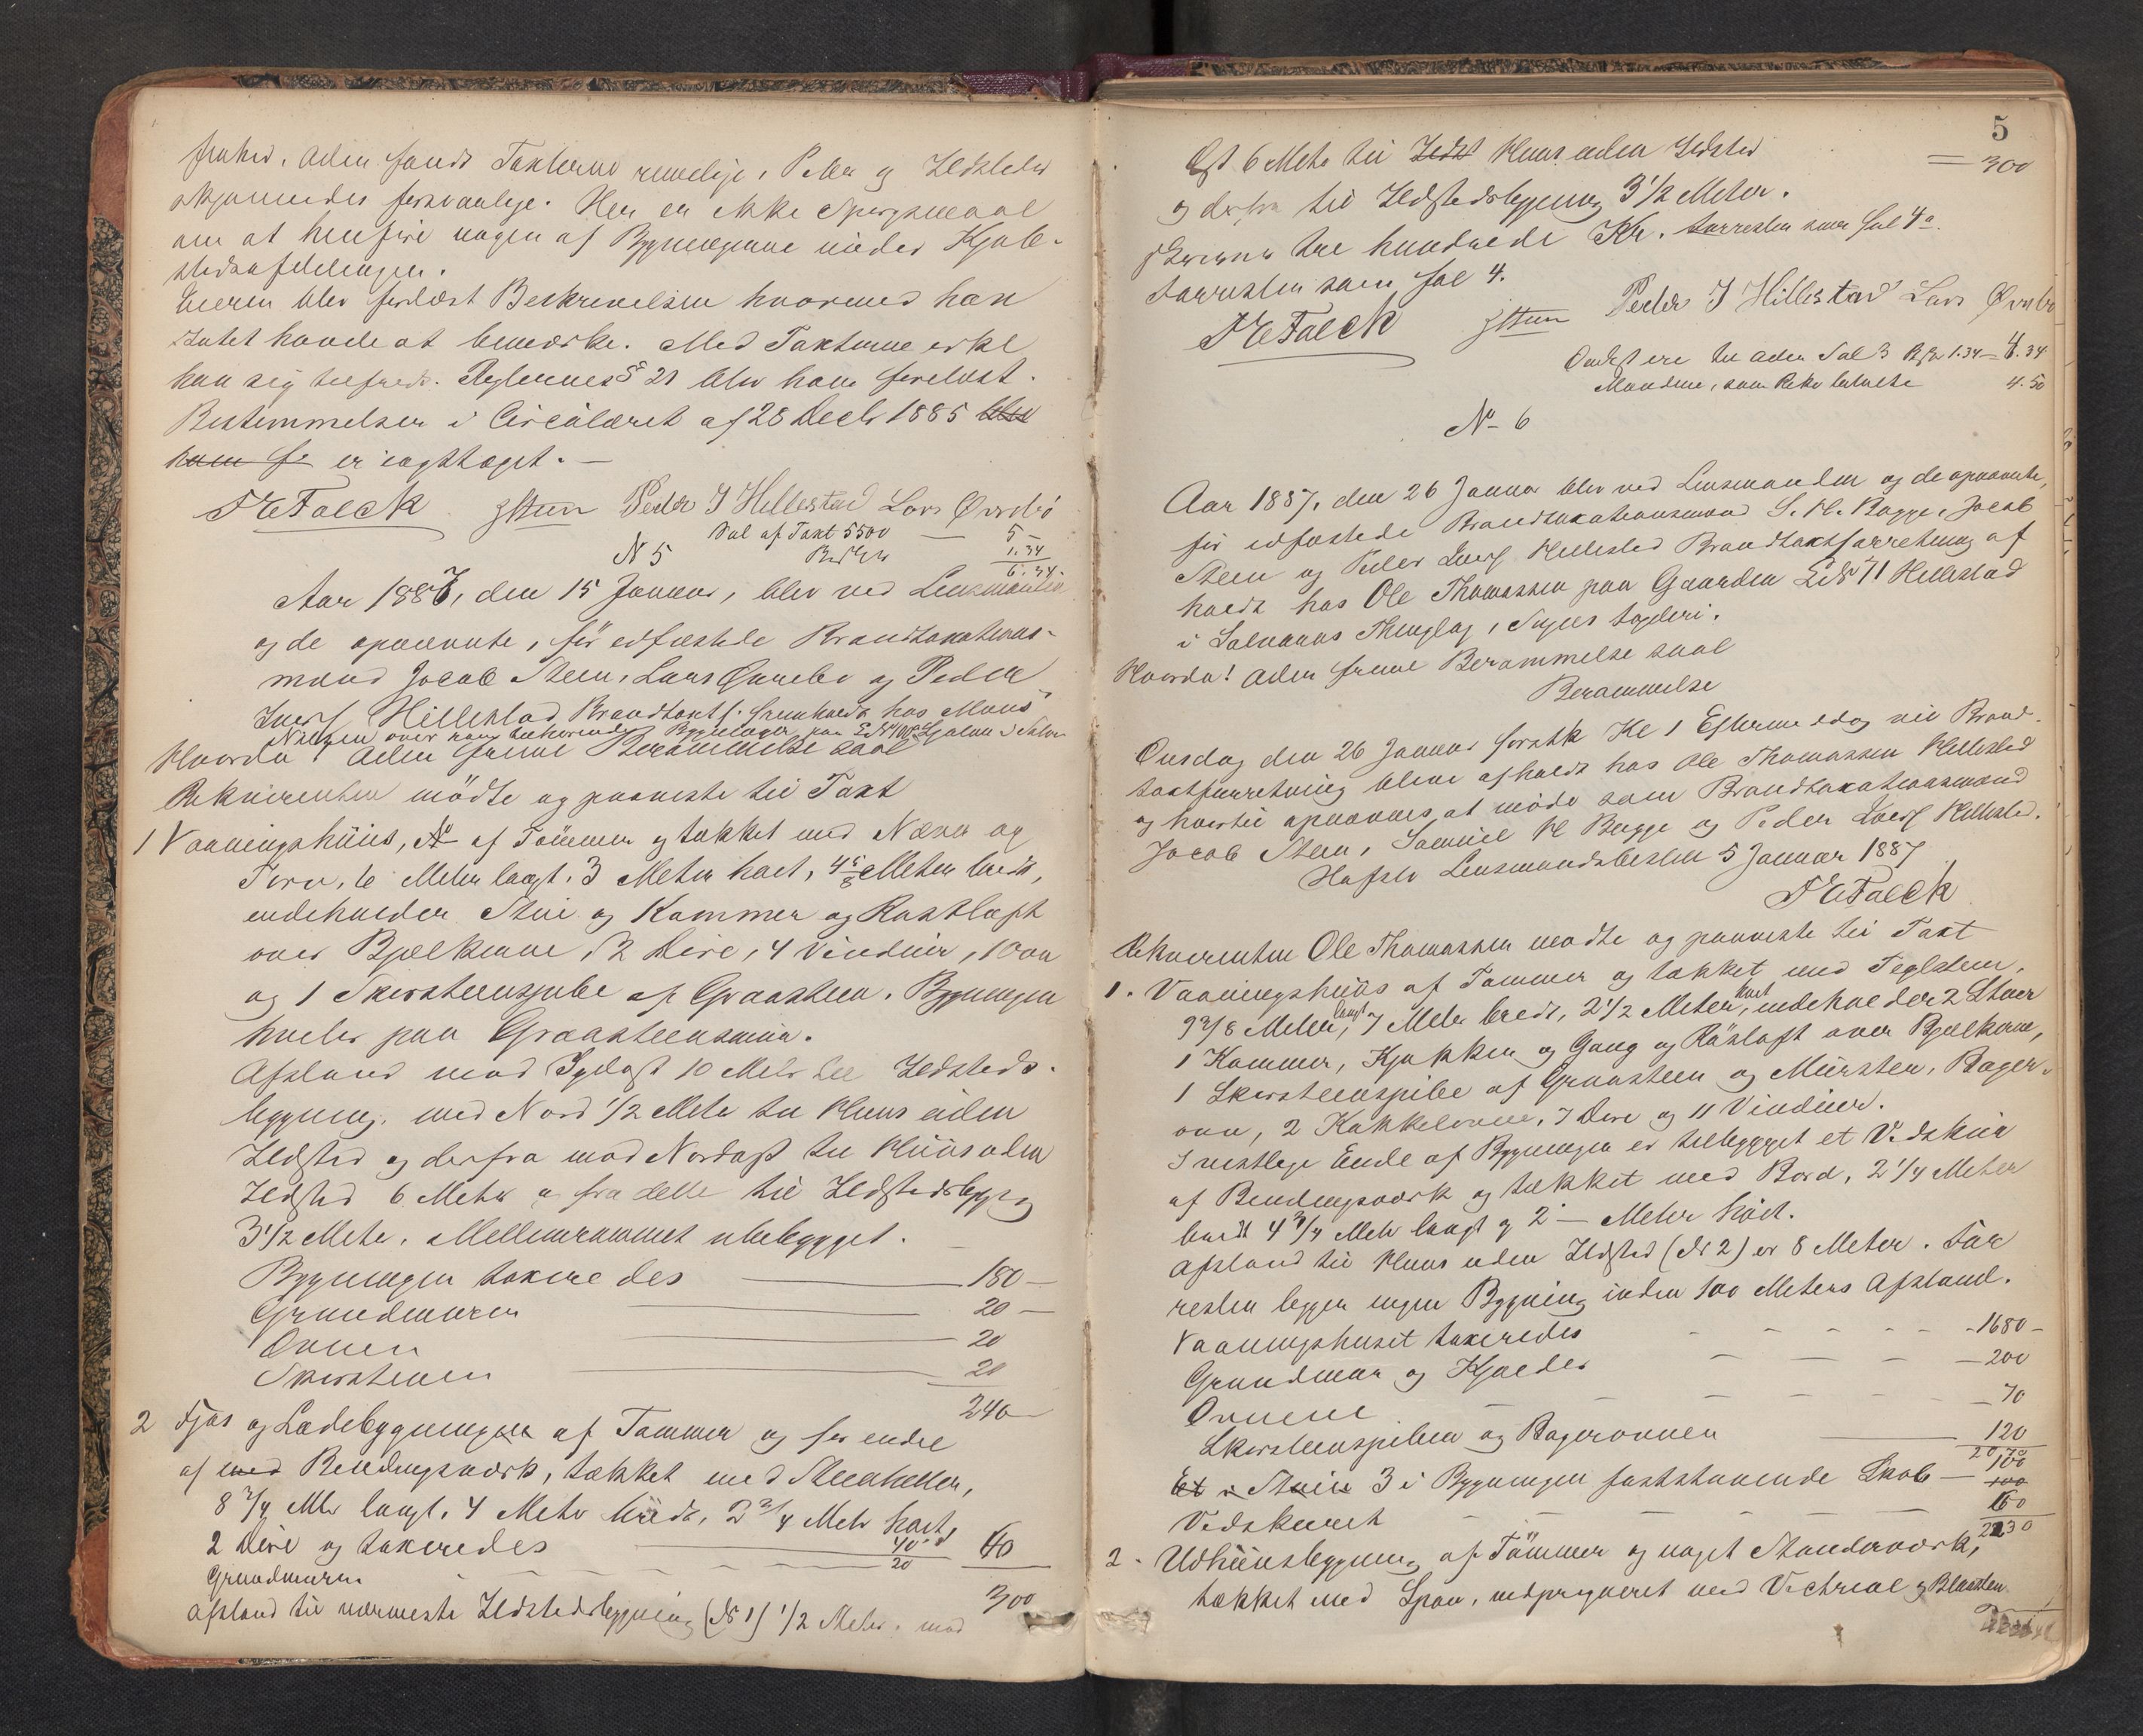 frahed. Aden fandt Taxterne rimelige, Piber og Ildsteder
skjønnedes forsvarlige. Her er ikke Spørgsmaal
om at henføre nogen af Bygningerne under Kjøb-
stedsafdelingen.
Eieren blev forelæst Beskrivelsen hvormed han
Intet havde at bemærke. Med Taxterne erkl
han sig tilfreds. Reglernes § 21 blev ham forelæst.
Bestemmelsen i Circulæret af 28 Decbr 1885 blev
ham f. er iagttaget. —
Falck JSteen Peder J Hillestad Lars Øvrebø
Sal af Taxt 5500 — 5 -
N 5 1.34
6.34
Aar 1887, den 15 Januar, blev ved Lensmanden
og de opnævnte, før edfæstede Brandtaxations-
mænd Jacob Steen, Lars Øvrebø og Peder
Iversf Hillestad Brandtaxtf. fremholdt hos Mons
Hvorda! Aden frem Berammelse saal
Rekvirenten mødte og paaviste til Taxt
1 Vaaningshuus, N af Tømmer og tækket med Næver og
Torv, 6 Meter langt, 3 Meter høit, 4 5/8 Meter bredt,
indeholder Stue og Kammer og Røstloft
over Bjælkerne, 2 Døre, 4 Vinduer, 1 Ovn
og 1 Skorsteenspibe af Graasteen. Bygningen
hviler paa Graasteensmuur.
Afstand mod Sydost 10 Meter til Ildsteds-
bygning, mod Nord 1/2 Meter til Huus uden
Ildsted og derfra mod Nordost til Huus uden
Ildsted 6 Meter og fra dette til Ildstedsbygg
3 1/2 Meter. Mellemrummet ubebygget.
Bygningen taxeredes — 180 —
Grundmuren — 20 —
Ovnen — 20
Skorstenen — 20
240 —
2 Fjøs og Ladebygningen af Tømmer og for endel
af med Bindingsværk, tækket med Steenheller,
8 3/4 Mtr langt, 4 Meter bredt, 2 3/4 Meter høit,
2 Døre og taxeredes — 40 60
Grundmuren — 20
300
Afstand til nærmeste Ildstedsbygning (N 1) 1/2 Meter. mod
5
Øst 6 Meter til Ildst Huus uden Ildsted = 300
og derfra til Ildstedsbygning 3 1/2 Meter.
tre hundrede Kr. forresten som fol 4a.
Forresten som fol 4.
Falck JSteen Peder J Hillestad Lars Øvrebø
4.34
Mændene, som Rekv betalte 4.50
N 6
Aar 1887, den 26 Januar blev ved Lensmanden og de opnævnte,
før edfæstede Brandtaxationsmænd S. H. Bugge, Jacob
Steen og Peder Iversf Hillestad Brandtaxtforretning af
holdt hos Ole Thomassen paa Gaarden LN 71 Hillestad
i Solvorns Thinglag, Sogns Fogderi.
Hvorda! Aden frem Berammelse saal
Berammelse
Onsdag den 26 Januar førstk Kl 1 Efterm. idag vil Brand-
taxtforretning blive afholdt hos Ole Thomassen Hillestad
og hvortil opnævnes at møde som Brandtaxationsmænd
Jacob Steen, Samuel H Bugge og Peder Iversf Hillestad.
Hafslo Lensmandsbestill 5 Januar 1887
Falck
Rekvirenten Ole Thomassen mødte og paaviste til Taxt
1. Vaaningshuus af Tømmer og tækket med Teglsteen,
9 3/8 Meter langt, 7 Meter bredt, 2 1/2 Meter høit, indeholder 2 Stuer
1 Kammer, Kjøkken og Gang og Røsloft over Bjælkerne,
1 Skorsteenspibe af Graasteen og Mursten, Bager-
ovn, 2 Kakkelovne, 7 Døre og 11 Vinduer.
I vestlige Ende af Bygningen er tilbygget et Vedskuur
af Bindingsværk og tækket med Bord, 2 1/4 Meter
bredt 4 3/4 Meter langt og 2 — Meter høit.
Afstand til Huus uden Ildsted (N 2) er 8 Meter. For
resten ligger ingen Bygning inden 100 Meters Afstand.
Vaaningshuset taxeredes — 1680 —
Grundmur og Kjælder — 200
Ovnene — 70
Skorsteenspiben og Bagerovnen — 120
2070
Et i Stuen 3 i Bygningen faststaaende Skabe — 100
100
Vedskuret — 60
2230
2. Udhuusbygning af Tømmer og noget Stænderværk,
tækket med Spon, imprægneret med Victreol og Blaasten.